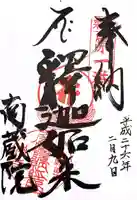 奉納
平成二十六年
二月九日
釋迦如来
南蔵院